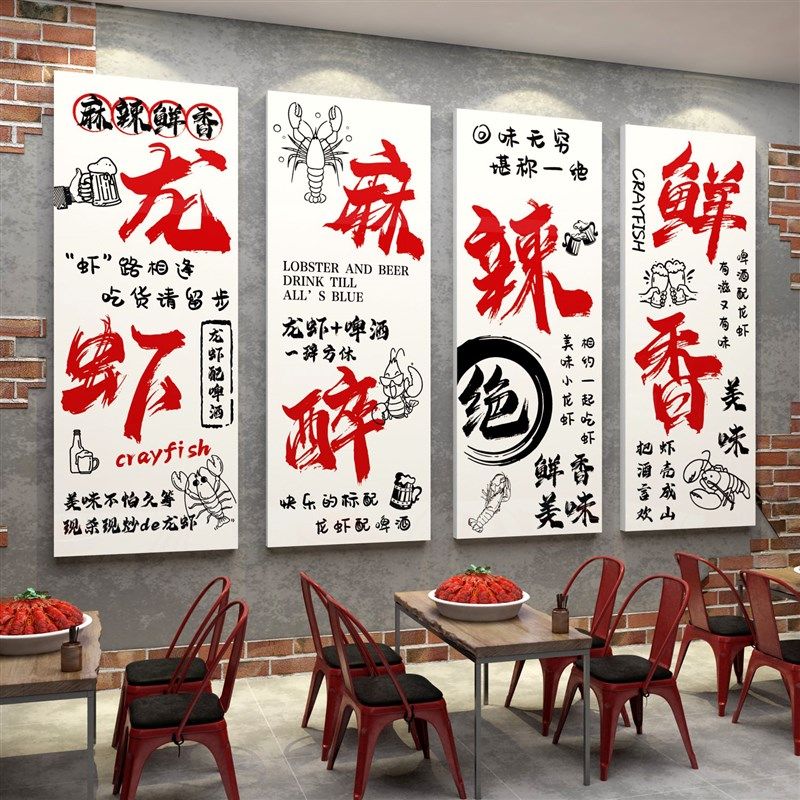 麻辣鲜香
龙
“虾”路相逢
吃货请留步
虾
龙虾配啤酒
crayfish
美味不怕久等
现杀现炒de龙虾
麻
LOBSTER AND BEER
DRINK TILL
ALL'S BLUE
龙虾+啤酒
一醉方休
醉
快乐的标配
龙虾配啤酒
回味无穷
堪称一绝
辣
相约一起吃虾
美味小龙虾
绝
鲜香
美味
CRAYFISH
鲜
啤酒配龙虾
有滋又有味
香
美味
虾壳成山
把酒言欢